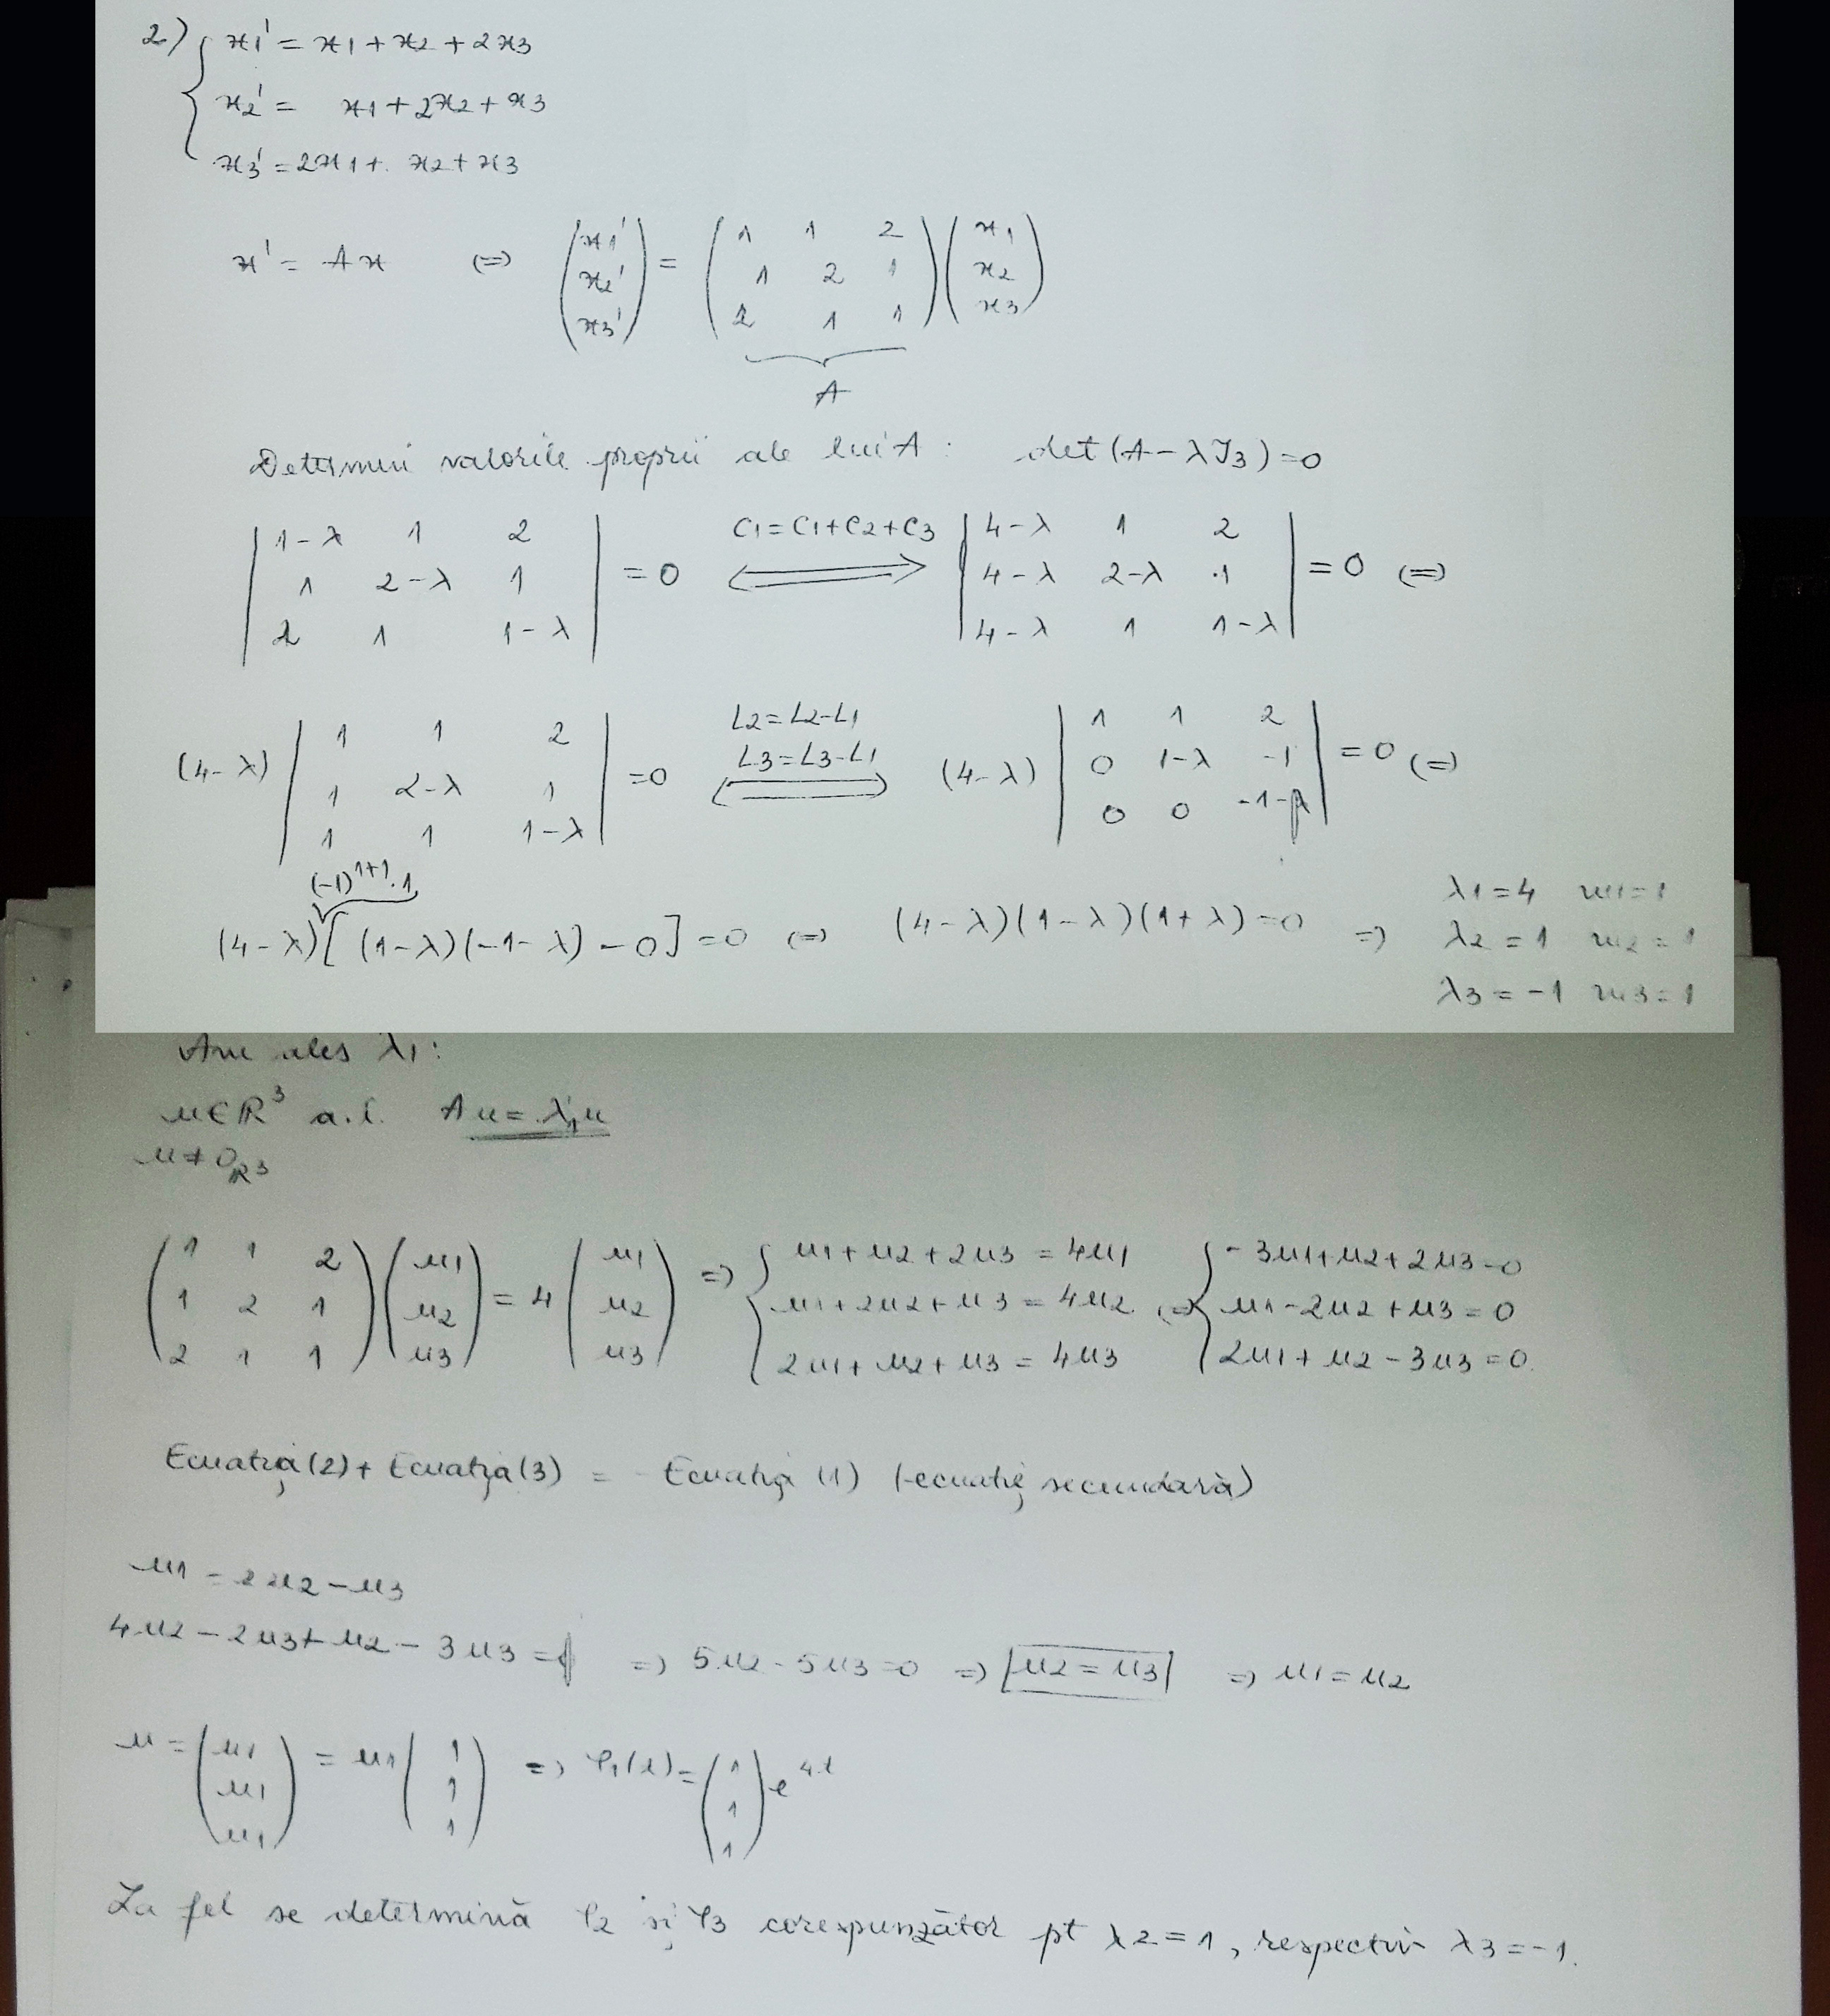 2) { x1' = x1 + x2 + 2x3
x2' = x1 + 2x2 + x3
x3' = 2x1 + x2 + x3
x' = Ax (=) (x1' x2' x3') = (1 1 2 / 1 2 1 / 2 1 1) (x1 x2 x3)
A
Determin valorile proprii ale lui A : det (A - λI3) = 0
| 1-λ 1 2 / 1 2-λ 1 / 2 1 1-λ | = 0 C1 = C1 + C2 + C3 <=> | 4-λ 1 2 / 4-λ 2-λ 1 / 4-λ 1 1-λ | = 0 (=)
(4-λ) | 1 1 2 / 1 2-λ 1 / 1 1 1-λ | = 0 L2 = L2 - L1 L3 = L3 - L1 <=> (4-λ) | 1 1 2 / 0 1-λ -1 / 0 0 -1-λ | = 0 (=)
(-1)^1+1 · 1
(4-λ) [(1-λ)(-1-λ) - 0] = 0 (=) (4-λ)(1-λ)(1+λ) = 0 =) λ1 = 4 m1 = 1
λ2 = 1 m2 = 1
λ3 = -1 m3 = 1
Am ales λ1 :
u ∈ R^3 a.î. Au = λ1u
u ≠ 0R3
(1 1 2 / 1 2 1 / 2 1 1) (u1 u2 u3) = 4 (u1 u2 u3) =) { u1 + u2 + 2u3 = 4u1 / u1 + 2u2 + u3 = 4u2 / 2u1 + u2 + u3 = 4u3 (=) { -3u1 + u2 + 2u3 = 0 / u1 - 2u2 + u3 = 0 / 2u1 + u2 - 3u3 = 0.
Ecuația (2) + Ecuația (3) = - Ecuația (1) (-ecuație secundară)
u1 = 2u2 - u3
4u2 - 2u3 + u2 - 3u3 = 0 =) 5u2 - 5u3 = 0 =) u2 = u3 =) u1 = u2
u = (u1 u1 u1) = u1 (1 1 1) =) φ1(t) = (1 1 1) e^4t
La fel se determină φ2 și φ3 corespunzător pt λ2 = 1, respectiv λ3 = -1.